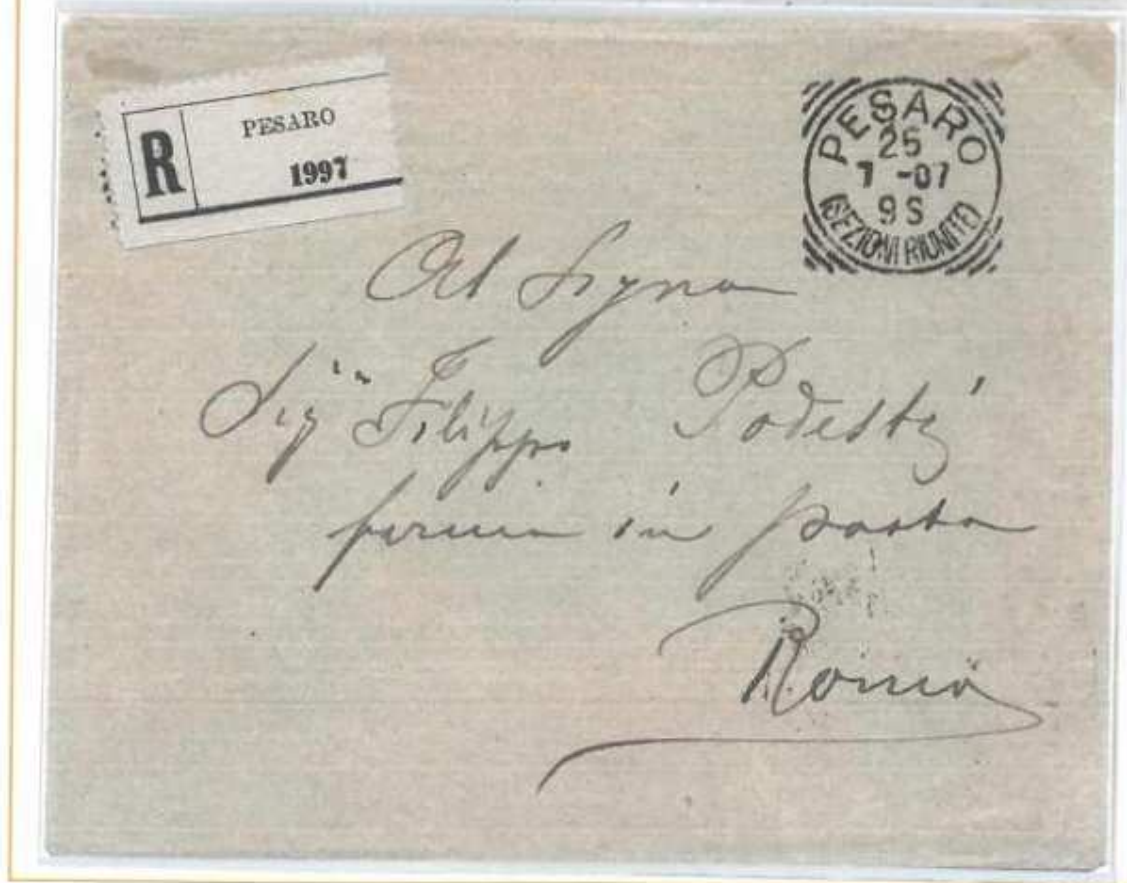 R PESARO
1997
PESARO
25
7 -07
9 S
(SEZIONI RIUNITE)
Al Signor
Sig. Filippo Podestà
ferma in posta
Roma